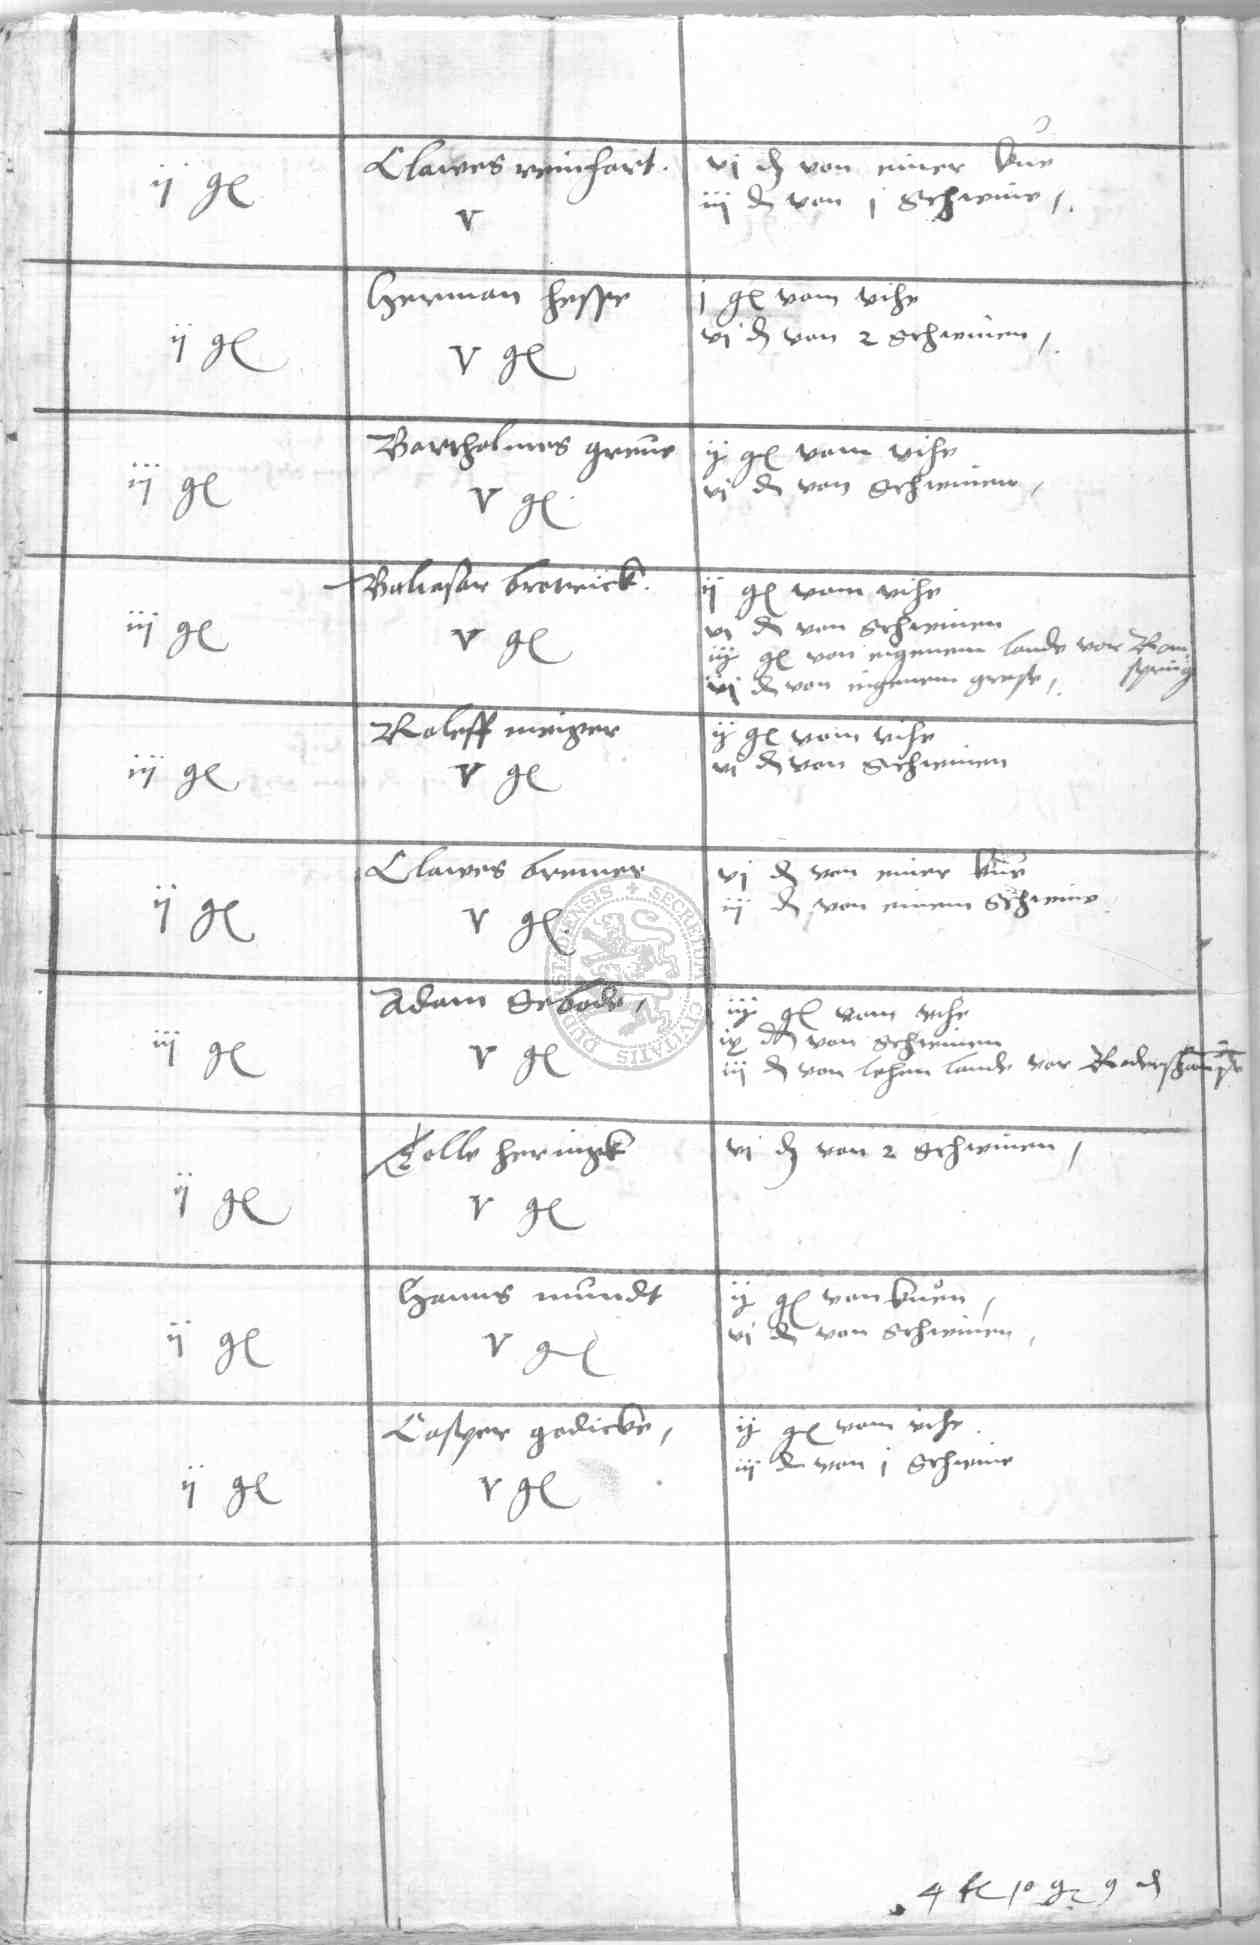 ij gl
Clawes reinhart.
v
vj d von einer kue
iij d von j Schweine,
ij gl
Herman hesse
v gl
j gl vom vihe
vj d von 2 schweinen,
iij gl
Bartholmes greue
v gl
ij gl vom vihe
vj d von Schweinen,
iij gl
Baltasar
v gl
ij gl vom vihe
vj d von Schweinen
iij gl von eigenem lande vor Ram
sprung
vj d von eigenem grase,
iij gl
Roleff meiger
v gl
ij gl vom vihe
vj d von Schweinen
ij gl
Clawes bremer
v gl.
vj d von einer kue
iij d von einem Schweine
iij gl
Adam Sebode,
v gl
iij gl vom vihe
ix d von Schweinen
iij d von lehen lande vor
ij gl
v gl
vj d von 2 schweinen,
ij gl
Hanns mundt
v gl
ij gl von kuen,
vj d von Schweinen,
ij gl
Casper godicke,
v gl
ij gl vom vihe.
iij d von j Schweine
4 fl 10 gr 9 d
SECRETUM CIVITATIS DUDERSTADIENSIS